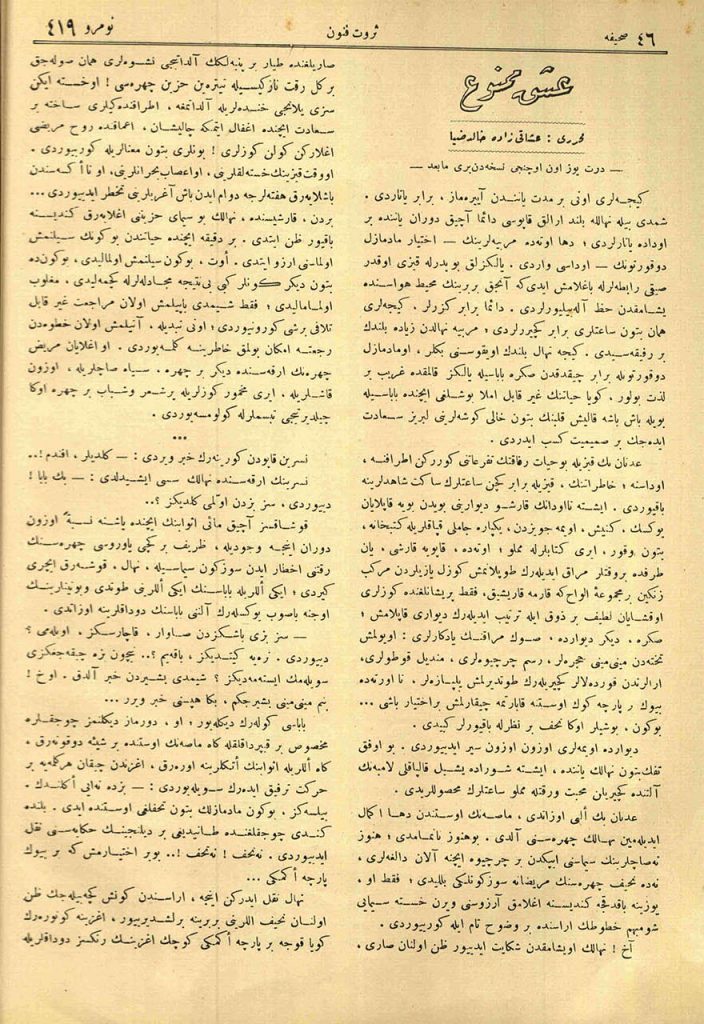 ٤٦ صحیفه
ثروت فنون
نومرو ٤١٩
عشق ممنوع
محرری : عشاقی زاده خالد ضیا
— درت یوز اون اوچنجی نسخه‌دن‌بری مابعد —
كیجه‌لری اونی بر مدت یانندن آییره‌ماز ، برابر یاتاردی .
شمدی بیله نهالله بلند ارالق قاپوسی دائما آچیق دوران یاننده بر
اوداده یاتارلردی ؛ دها اوته‌ده مربیه‌لرینك — اختیار مادمازل
دوقورتونك — اوداسی واردی . یالكزلق بو پدرله قیزی اوقدر
صیقی رابطه‌لرله باغلامش ایدی‌كه آنجق بربرینك محیط هواسنده
یشامقدن حظ آله‌بیلیورلردی . دائما برابر گزرلر . كیجه‌لری
همان بتون ساعتلری برابر كچیررلردی ؛ مربیه نهالدن زیاده بلندك
بر رفیقه‌سیدی . كیجه نهال بلندك اویقوسنی بكلر ، اومادمازل
دوقورتونله برابر چیقدقدن صكره باباسیله یالكز قالمقده غریب بر
لذت بولور . كویا حیاتنك غیر قابل املا بوشلغی ایچنده باباسیله
بویله باش باشه قالیش قلبنك بتون خالی كوشه‌لرینی لبریز سعادت
ایده‌جك بر صمیمیت كسب ایدردی .
عدنان بك قیزیله بوحیات رفاقتك تفرعاتنی كوررکن اطرافنه ،
اوداسنه ؛ خاطراتنك ، قیزیله برابر كچن ساعتلرك ساكت شاهدلرینه
باقیوردی . ایشته تااودانك قارشو دیوارینی بویدن بویه قاپلایان
یوكسك . كنیش ، اویمه جویزدن ، یكپاره جاملی قپاقلریله كتبخانه ،
بتون وقور ، ایری كتابلرله مملو ؛ اوته‌ده ، قاپویه قارشی ، یان
طرفده بروقتلر مراق ایدیله‌رك طوپلانمش كوزل یازیلردن مركب
زنكین بر مجموعهٔ الواح‌كه قارمه قاریشیق، فقط پریشانلغنده كوزلری
اوقشایان لطیف بر ذوق ایله ترتیب ایدیله‌رك دیواری قاپلامش ؛
صكره ، دیكر دیوارده ، صوك مراقنك یادكارلری : اویولمش
تخته‌دن مینی مینی حجره‌لر ، رسم چرچیوه‌لری ، مندیل قوطولری ،
ارالرندن قورده‌لالر كچیریله‌رك طوندیرلمش یلپازه‌لر . تا اورته‌ده
بیوك بر پارچه كوك اوستنه قابارتمه چیقارلمش براختیار باشی ...
بوكون . بوشیلر اوكا نحف بر نظرله باقیورلر كبیدی .
دیوارده اویمه‌لری اوزون اوزون سیر ایدییوردی . بو اوفق
تفك‌بتون نهالك یاننده ، ایشته شوراده یشیل قالپاقلی لامبه‌نك
آلتنده كچیریلن محبت ورقتله مملو ساعتلرك محصوللریدی .
عدنان بك ألنی اوزاتدی ، ماصه‌نك اوستندن دها ا كمال
ایدیله‌مین نهالك چهره‌سنی آلدی . بوهنوز یاتمامدی ؛ هنوز
نه‌صاچلرینك سیماسی ایپكدن بر چرچیوه ایچنه آلان دالغه‌لری ،
نه‌ده نحیف چهره‌سنك مریضانه سوزكونلكی بللیدی ؛ فقط او ،
یوزینه باقدقجه كندیسنه اغلامق آرزوسنی ویرن خسته سیمایی
شومبهم خطوطك اراسنده بر وضوح تام ایله كوریوردی .
آخ ! نهالك اویشامقدن شكایت ایدییور ظن اولنان صاری .
صاریلغنده طیار بر پنبه‌لكك آلداتیجی نشوه‌لری همان صوله‌جق
بركل رقت نازكیسیله تیتره‌ین حزین چهره‌سی ! اوخسته ایكن
سزی یلانجی خنده‌لریله آلداتمغه ، اطرافنده‌كیلری ساخته بر
سعادت ایچنده اغفال ایتمكه چالیشان ، اعماقنده روح مریضی
اغلاركن كولن كوزلری ! بونلری بتون معنالریله كوریوردی .
اووقت قیزینك خسته‌لقلرینی . اواعصاب بحرانلرینی، او تا أ كسه‌ندن
باشلایه‌رق هفته‌لرجه دوام ایدن باش آغریلرینی تخطر ایدییوردی ...
بردن ، قارشیسنده ، نهالك بو سیمای حزینی اغلایه‌رق كندیسنه
باقیور ظن ایتدی . بر دقیقه ایچنده حیاتندن بوكونك سیلنمش
اولماسنی ارزو ایتدی . أوت ، بوكون سیلنمش اولمالیدی ، بوكون‌ده
بتون دیكر كونلر كبی بی‌نتیجه مجادله‌لرله كچمه‌لیدی . مغلوب
اولمامالیدی ؛ فقط شیمدی یاپیلمش اولان مراجعت غیر قابل
تلافی برشی كورونیوردی ؛ اونی تبدیله . آتیلمش اولان خطوه‌دن
رجعته امكان بولمق خاطرینه كلمه‌یوردی . او اغلایان مریض
چهره‌نك ارقه‌سنده دیكر بر چهره . سیاه صاچلریله ، اوزون
قاشلریله ، ایری مخمور كوزلریله پرشعر وشباب بر چهره اوكا
چیلدیرتیجی تبسملرله كولومسه‌یوردی .
***
نسرین قاپودن كورینه‌رك خبر ویردی : — كلدیلر ، افندم !..
نسرینك ارقه‌سنده نهالك سسی ایشیدلدی : — بك بابا !
دییوردی ، سز بزدن اولمی كلدیكز ؟..
قوشاقسز آچیق مائی اثوابنك ایچنده یاشنه نسبةً اوزون
دوران اینجه وجودیله ، ظریف بر كچی یاوروسی چهره‌سنك
رقتنی اخطار ایدن سوزكون سیماسیله . نهال ، قوشه‌رق ایچری
كیردی ؛ ایكی أللریله باباسنك ایكی أللرینی طوتدی وبوینارینك
اوجنه باصوب یوكسه‌له‌رك آلننی باباسنك دوداقلرینه اوزاتدی .
— سز بزی باشكزدن صاوار ، قاچارسكز . اویله‌می ؟
دییوردی . نره‌یه كیتدیكز ، باقه‌یم ؟.. نیچون بزه چیقه‌جغكزی
سویله‌مك ایسته‌مه‌دیكز ؟ شیمدی بشیردن خبر آلدق . اوخ !
بنم مینی‌مینی بشیرجكم ، بكا هپسنی خبر ویرر ...
باباسی كوله‌رك دیكله‌یور ؛ او ، دورماز دیكلنمز چوجقلره
مخصوص بر قیپرداقلقله كاه ماصه‌نك اوستنده بر شیئه دوقونه‌رق ،
كاه أللریله اثوابنك أتكلرینه اوره‌رق ، اغزندن چیقان هركلمه‌یه بر
حركت ترفیق ایده‌رك سویله‌یوردی : — بزده نه‌ایی أكلندك .
بیلسه‌كز ، بوكون مادمازلك بتون تحفلغی اوستنده ایدی . بلنده
كندی چوجقلغنده طانیدیغی بر دیلنجینك حكایه‌سنی نقل
ایدییوردی . نه‌تحف ! نه‌تحف !.. بوبر اختیارمش كه بر بیوك
پارچه أكمكی ...
نهال نقل ایدركن اینجه ، اراسندن كونش كچه‌بیله‌جك ظن
اولنان نحیف اللرینی بربرینه برلشدیرییور ، اغزینه كوتوره‌رك
كویا قوجه بر پارچه أكمكی كوچك اغزینك رنكسز دوداقلریله